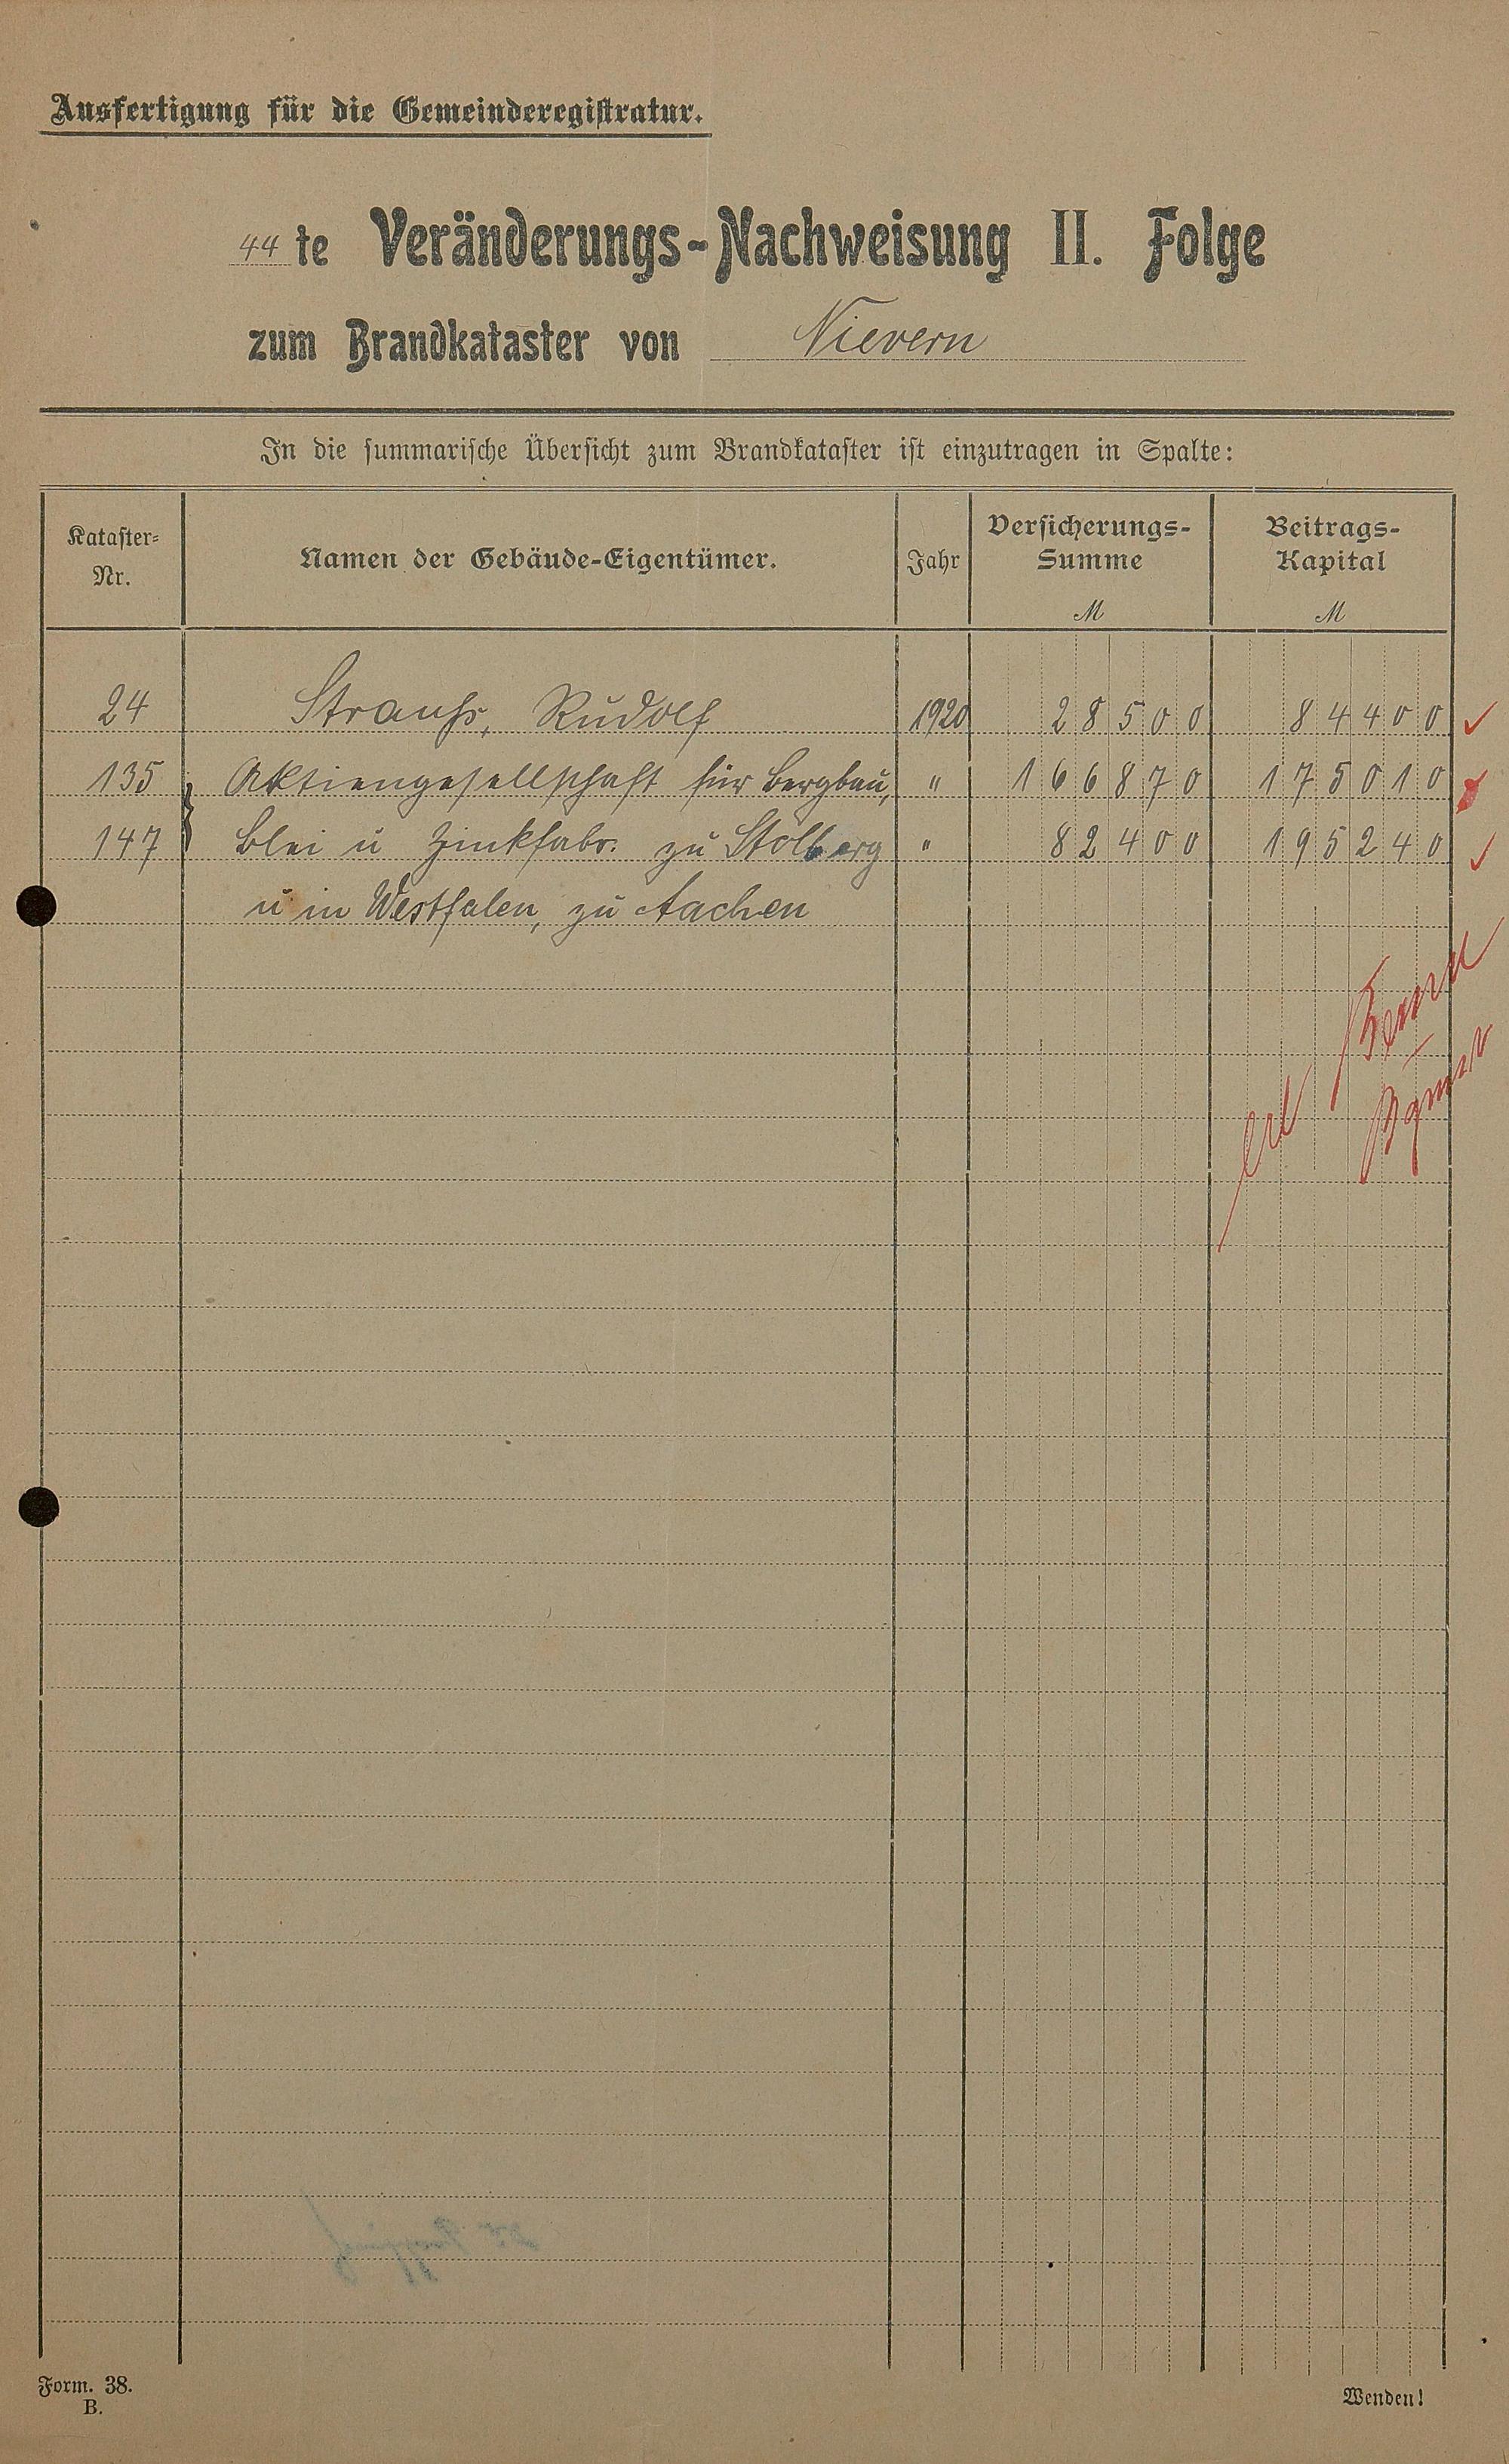 Ausfertigung für die Gemeinderegistratur.
44 te Veränderungs-Nachweisung II. Folge
zum Brandkataster von Nievern
In die summarische Übersicht zum Brandkataster ist einzutragen in Spalte:
Kataster-Nr. Namen der Gebäude-Eigentümer. Jahr Versicherungs-Summe M Beitrags-Kapital M
24 Strauß, Rudolf 1920 28500 84400 ✓
135 Aktiengesellschaft für Bergbau, " 166870 175010
147 Blei u Zinkfabr. zu Stolberg " 82400 195240 ✓
u in Westfalen, zu Aachen
erl
Bgmstr
Form. 38.
B.
Wenden!